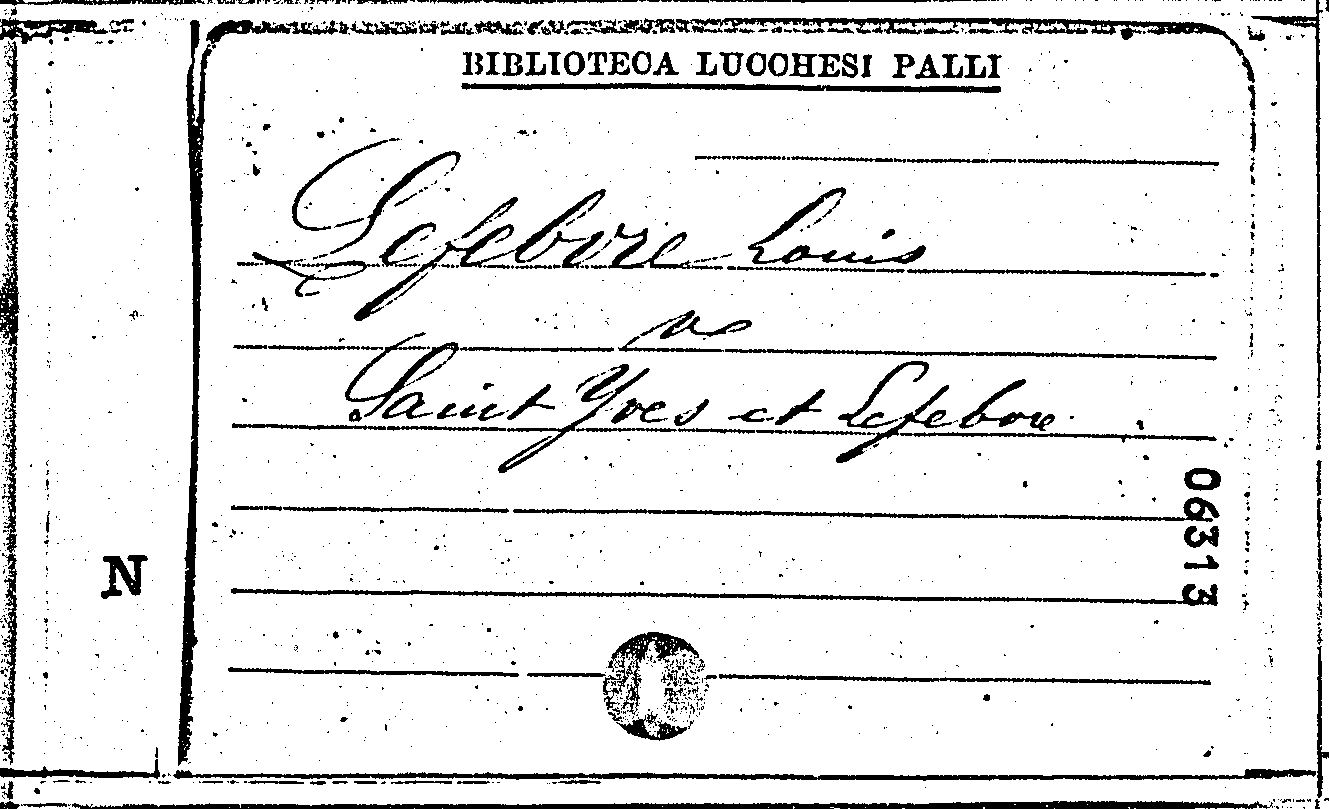 BIBLIOTECA LUCCHESI PALLI
Lefebvre Louis
v
Saint Yves et Lefebvre
N
06313